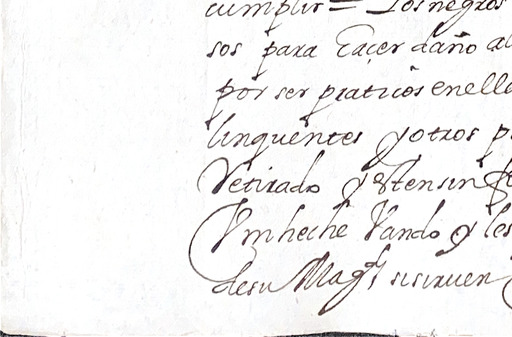 cumplir = Los negros
sos para haçer daño al
por ser praticos en ello
linquentes y otros p
Retirado y esten sin
Vm heche Vando y les
de su Magd si siruen